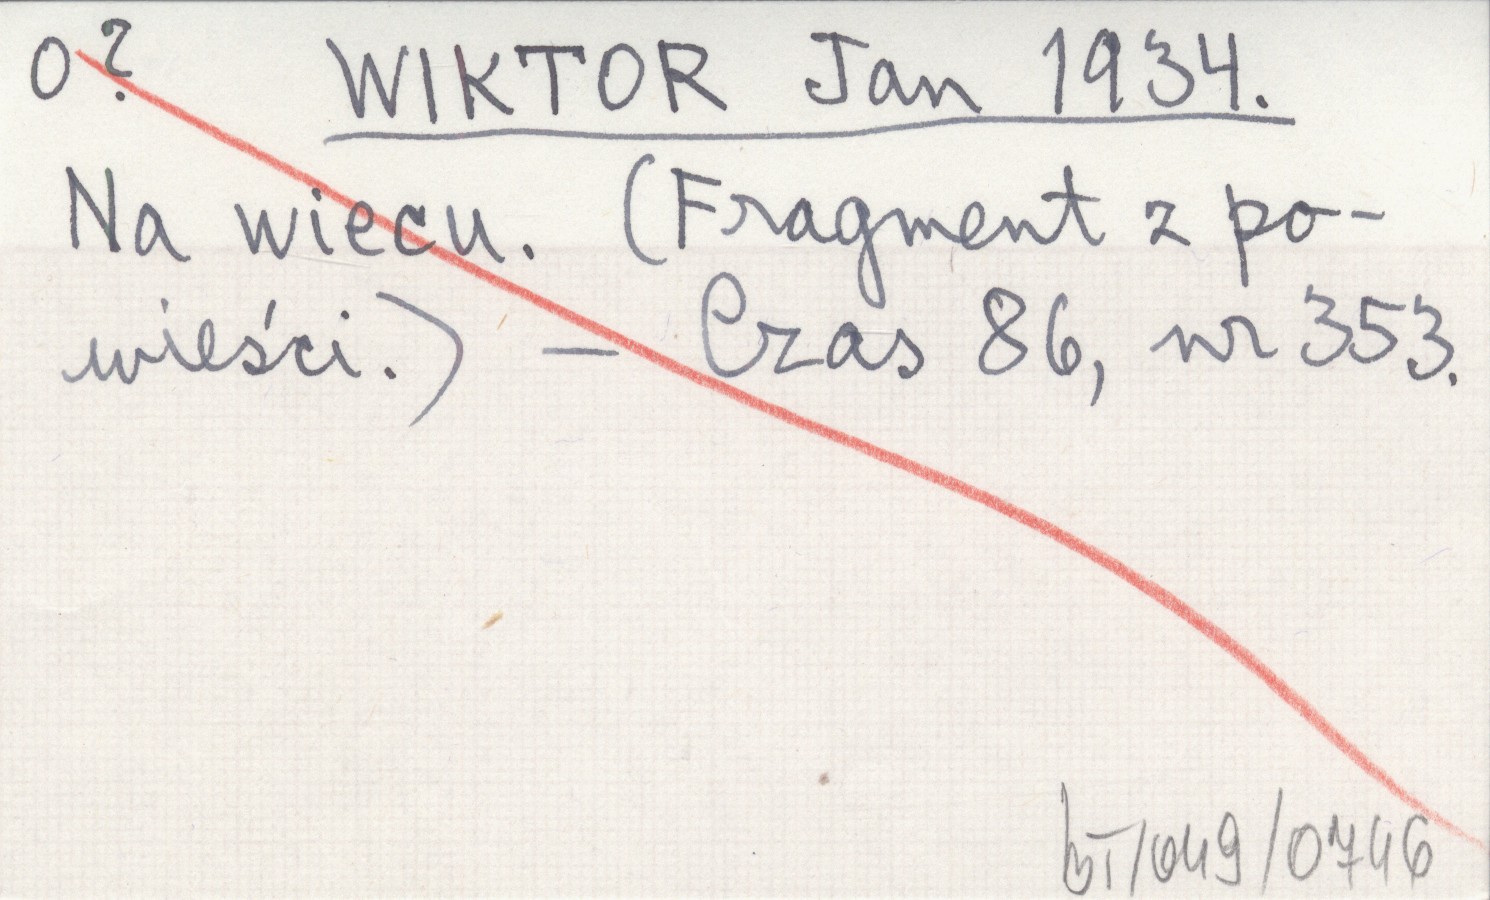 O? WIKTOR Jan 1934.
Na wiecu. (Fragment z po-
wieści.) — Czas 86, nr 353.
bT/049/0746